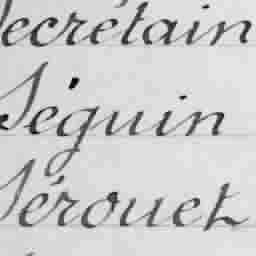 Secrétain
Séguin
Sérouet